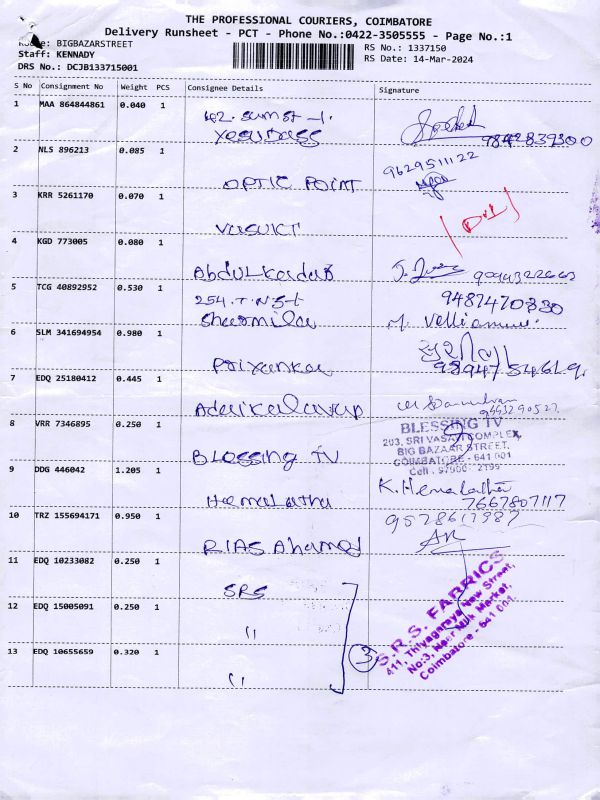 THE PROFESSIONAL COURIERS, COIMBATORE
Delivery Runsheet - PCT - Phone No.:0422-3505555 - Page No.:1
Route: BIGBAZARSTREET
Staff: KENNADY
DRS No.: DCJB133715001
RS No.: 1337150
RS Date: 14-Mar-2024
S No Consignment No Weight PCS Consignee Details Signature
1 MAA 864844861 0.040 1
Yesudass 9842839300
2 NLS 896213 0.085 1 9629511122
OPTIC POINT
3 KRR 5261170 0.070 1
VASUKI
4 KGD 773005 0.080 1
Abdulkadar
5 TCG 40892952 0.530 1 254.T.N.St 9487470330
Sharmila
6 SLM 341694954 0.980 1
Priyanka
7 EDQ 25180412 0.445 1
Adaikalavan
8 VRR 7346895 0.250 1 BLESSING TV
203, SRI VASAVI COMPLEX,
BIG BAZAAR STREET,
COIMBATORE - 641 001
Blessing TV
9 DDG 446042 1.205 1 K. Hemalatha
Hemalatha 7667807117
10 TRZ 155694171 0.950 1
RIAS Ahamed
11 EDQ 10233082 0.250 1 SRS
12 EDQ 15005091 0.250 1 "
13 EDQ 10655659 0.320 1 "
3
S.R.S. FABRICS
411, Thiyagaraya New Street,
No:3, Near Milk Market,
Coimbatore - 641 001.